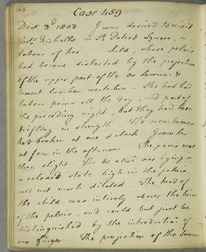 Case 459.
Decr 3d 1808 I was desired to visit
Mrs Nicholls in St Peters Square, in
labour of her child, whose pelvis
had become distorted by the projection
of the upper part of the Os Sacrum &
lowest lumbar vertebra. She had had
labour pains all the day, and part of
the preceding night, but they had been
trifling in strength. The membranes
had broken at one o'clock. I saw her
at four in the afternoon. The pains was
then slight. The Os uteri was lying in
a relaxed state high in the pelvis
and not much dilated. The head of
the child was entirely above the brim
of the pelvis, and could but just be
distinguished by the introduction of
one finger. The projection of the Sacrum